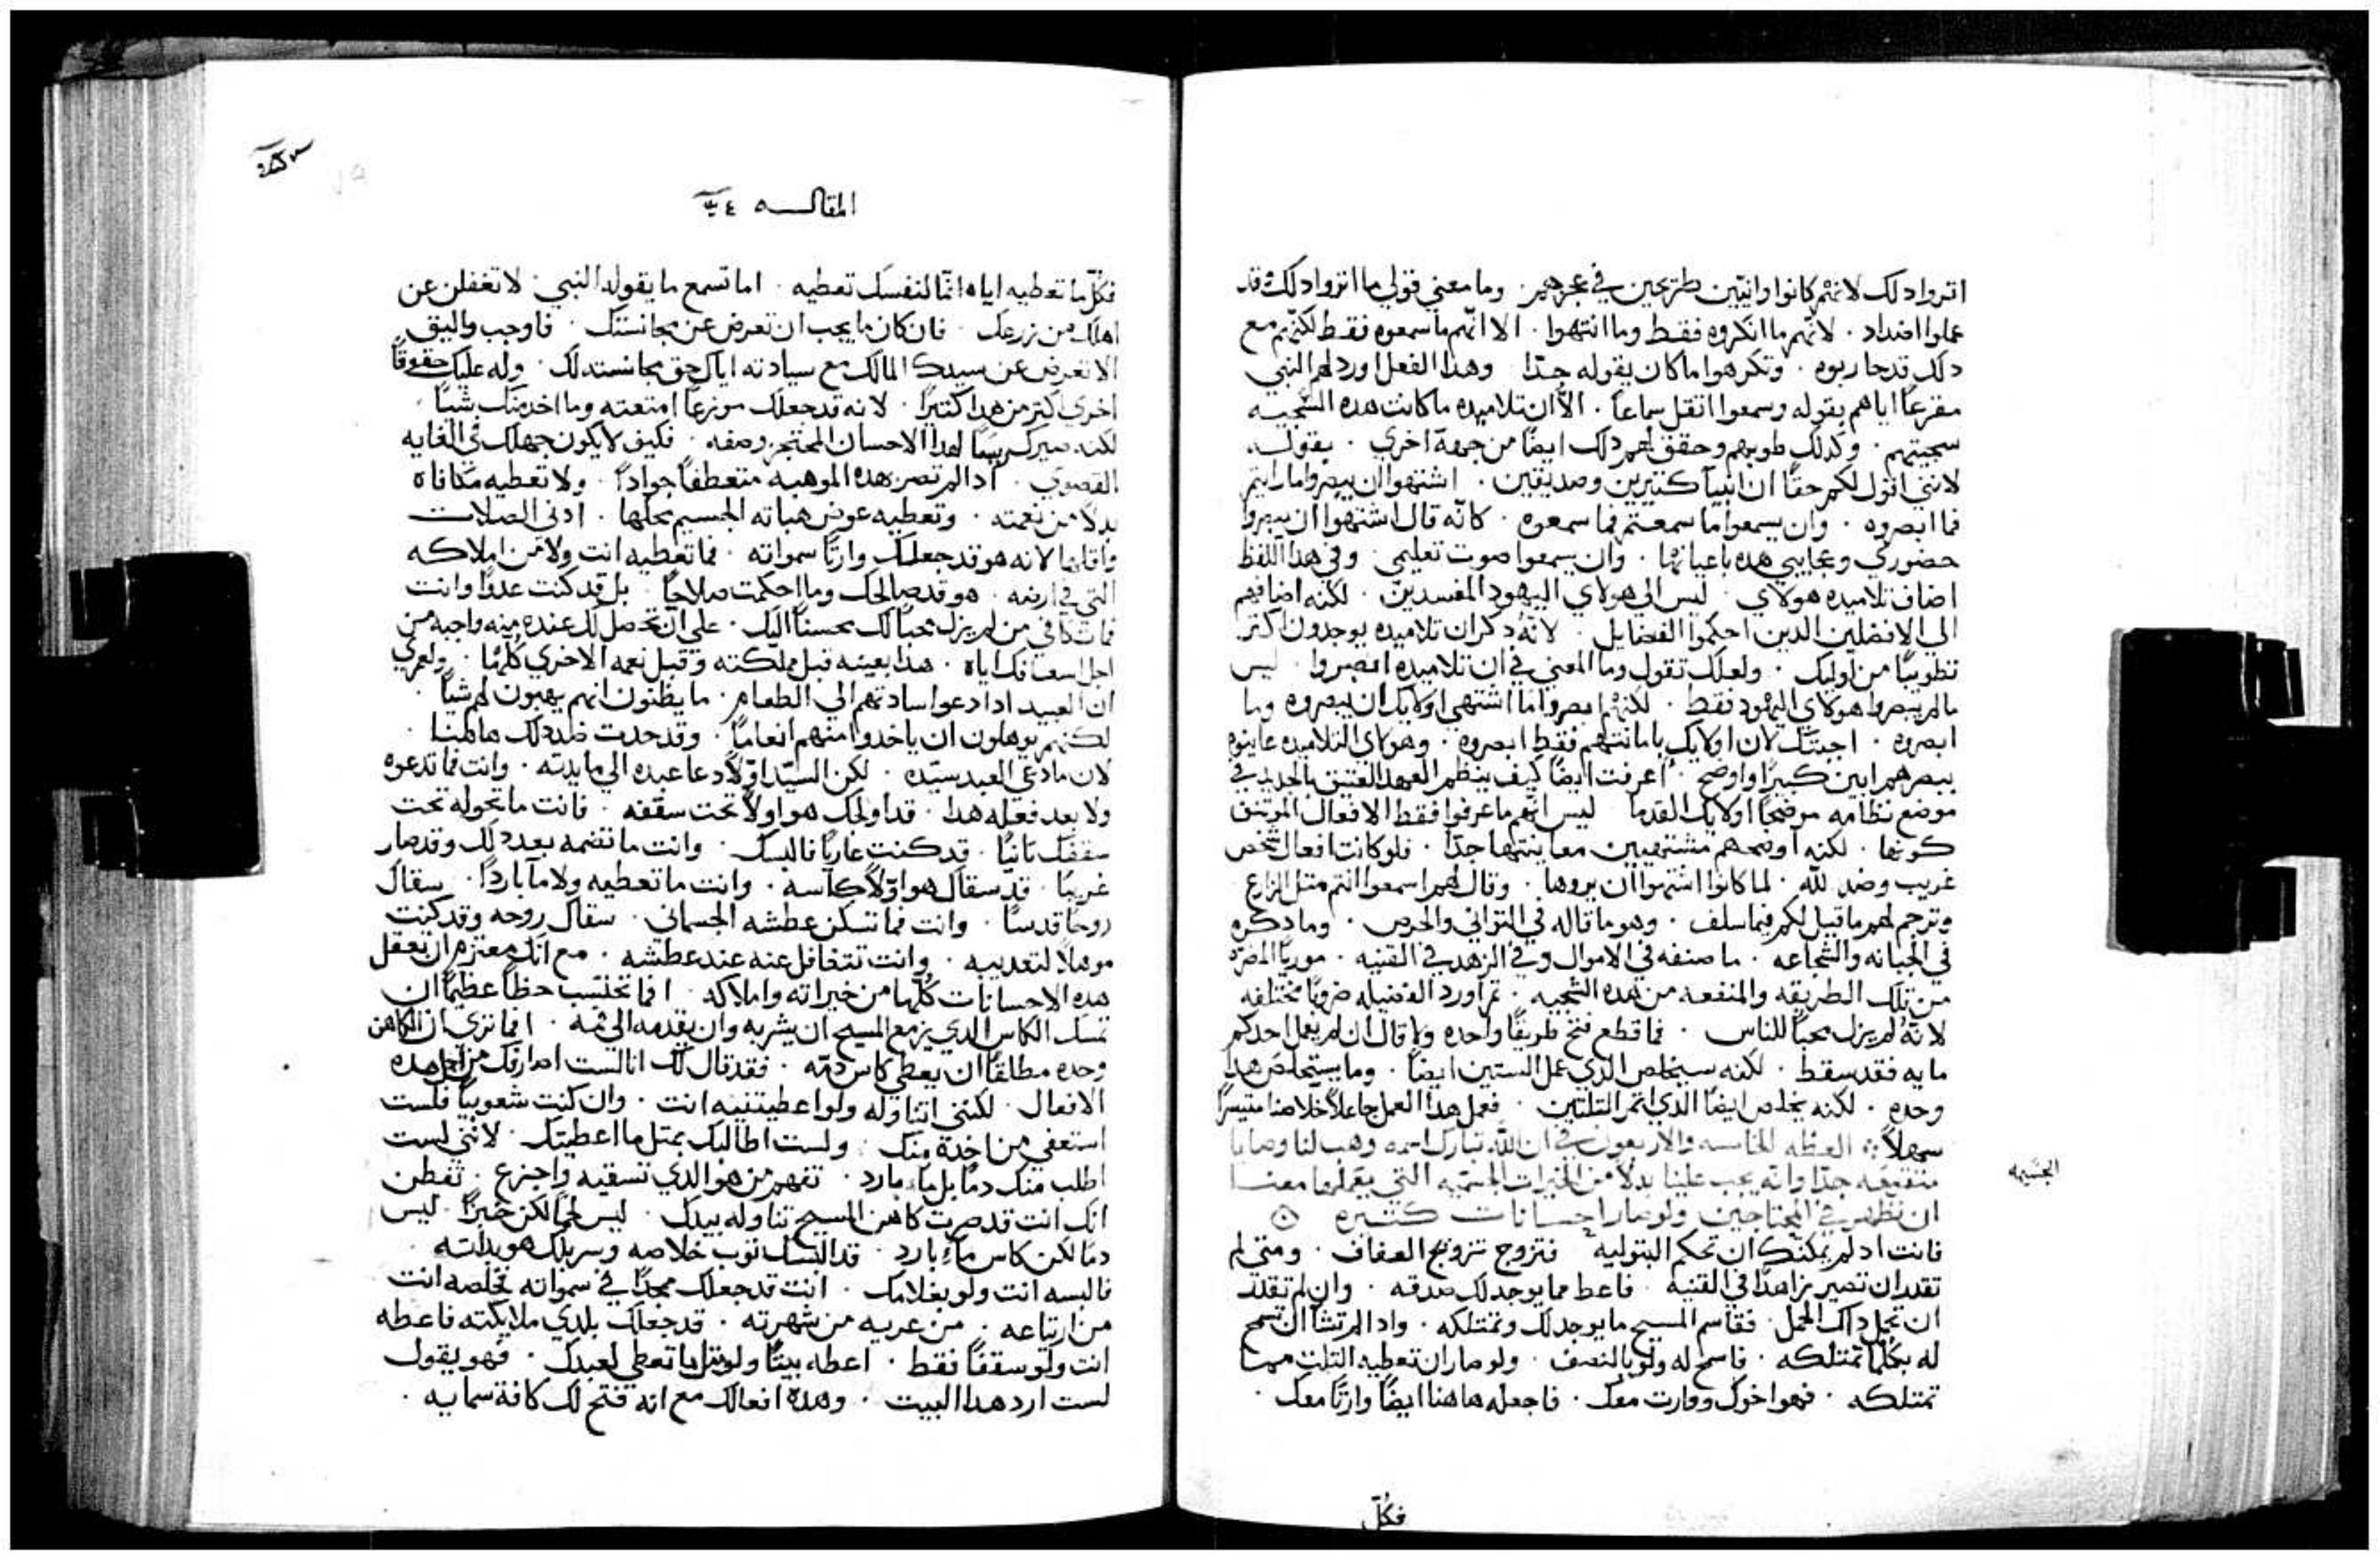 اتروا دلك لانهم كانوا وانيين طريحين في عجزهم . وما معني قولي ما اتروا دلك قد
عملوا اضداد . لانهم ما انكروه فقط وما انتهوا . الا انهم ما سمعوه فقط لكنهم مع
دلك قد حاربوه . وتكرهوا ما كان يقوله جدًا وهدا الفعل اورد لهم النبي
مقرعًا اياهم بقوله وسمعوا اتقل سماعًا . الا ان تلاميده ما كانت هده السجيه
سجيتهم . وكدلك طوبهم وحقق لهم دلك ايضًا من جهة اخري . بقوله
لانني اقول لكم حقًا ان انبيآ كتيرين وصديقين . اشتهوا ان يبصروا ما رايتم
فما ابصروه . وان يسمعوا ما سمعتم فما سمعوه . كانه قال اشتهوا ان يبصروا
حضوري وعجايبي هده باعيانها . وان يسمعوا صوت تعليمي . وفي هدا اللفظ
اضاف تلاميده هولاي . ليس الي هولاي اليهود المفسدين . لكنه اضافهم
الي الافضلين الدين احكموا الفضايل . لانه دكر ان تلاميده يوجدون اكتر
تطويبًا من اوليك . ولعلك تقول وما المعني في ان تلاميده ابصروا . ليس
ما لم يبصروا هولاي اليهود فقط . لكنهم ابصروا ما اشتهي اولايك ان يبصروه وما
ابصروه . اجبتك لان اولايك بامانتهم فقط ابصروه . وهولاي التلاميد عاينوه
ببصرهم ابين كتيرًا واوضح . اعرفت ايضًا كيف ينظم العهد العتيق بالجديد في
موضع نظامه موضحًا اولايك القدما ليس انهم ما عرفوا فقط الافعال الموتنق
كونها . لكنه اوضحهم مشتهيين معاينتها جدًا . فلو كانت افعال شخص
غريب وضد لله . لما كانوا اشتهوا ان يروها . وقال لهم اسمعوا انتم متل الزارع
وترجم لهم ما قيل لكم فيما سلف . وهو ما قاله في التواني والحرص . وما دكره
في الجبانه والشجاعه . ما صنفه في الاموال وفي الزهد في القنيه . موريًا المضره
من تلك الطريقه والمنفعه من هده السجيه . تم اورد الفضيله ضروبًا مختلفه
لانه لم يزل محبًا للناس . فما قطع فتح طريقًا واحده ولا قال ان لم يعمل احدكم
مايه فقد سقط . لكنه سيخلص الدي عمل الستين ايضًا . وما يستخلص هدا
وحده . لكنه يخلص ايضًا الدي اتمر التلتين . فعمل هدا العمل جاعلاً خلاصنا متيسرًا
سهلاً العظه الخامسه والاربعون في ان الله تبارك اسمه وهب لنا وصايا
متفقه جدًا وانه يجب علينا بدلاً من الخيرات الجسيمه التي يعملها معنا
ان نظهر في المحتاجين ولو صار احسانات كتيره
الجسيمه
فانت اد لم يمكنك ان تحكم البتوليه فتزوج تزويج العفاف . ومتي لم
تقدر ان تصير زاهدًا في القنيه . فاعط مما يوجد لك صدقه . وان لم تقدر
ان تحمل داك الحمل . فقاسم المسيح ما يوجد لك وتمتلكه . وادا لم تشا ان تسمح
له بكلما تمتلكه . فاسمح له ولو بالنصف . ولو صار ان تعطيه التلت مما
تمتلكه . فهو اخوك ووارت معك . فاجعله هاهنا ايضًا وارتًا معك .
فكل
المقالـــه ٤
فكل ما تعطيه اياه انما لنفسك تعطيه . اما تسمع ما يقوله النبي . لا تغفلن عن
اهلك من زرعك . فان كان ما يجب ان تعرض عن مجانستك . فاوجب واليق
الا تعرض عن سيدك المالك مع سيادته اياك حق مجانسته لك . وله عليك حقوقًا
اخري اكتر من هدا كتيرًا . لانه قد جعلك موزعًا امتعته وما اخد منك شيًا .
لكنه صيرك ربًا لهدا الاحسان المحتجز وصفه . فكيف لا يكون جهلك في الغايه
القصوي . اد لم تصر بهده الموهبه متعطفًا جوادًا . ولا تعطيه مكافاه
بدلاً من نعمته . وتعطيه عوض هباته الجسيم محلها . ادني الصلات
واقلها لانه هو قد جعلك وارتًا سمواته . فما تعطيه انت ولا من املاكه
التي في ارضه . هو قد صالحك وما احكمت صلاحًا . بل قد كنت عدوًا وانت
فما تكافي من لم يزل محبًا لك محسنًا اليك . علي ان تحصل لك عنده منه واجبه من
اجل اسعافك اياه . هدا بعينه قبل مملكته وقبل نعمه الاخري كلها . ولعمري
ان العبيد ادا دعوا سادتهم الي الطعام . ما يظنون انهم يهبون لهم شيًا .
لكنهم يوهلون ان ياخدوا منهم انعامًا . وقد حدت ضد دلك هاهنا .
لان ما دعي العبد سيده . لكن السيد اولاً دعا عبده الي مايدته . وانت فما تدعوه
ولا بعد فعله هدا . قد اولجك هو اولاً تحت سقفه . فانت ما تحوله تحت
سقفك تانيًا . قد كنت عاريًا فالبسك . وانت ما تضمه بعد دلك وقد صار
غريبًا . قد سقاك هو اولاً كاسه . وانت ما تعطيه ولا ماً باردًا . سقاك
روحًا قدسًا . وانت فما تسكن عطشه الجسماني . سقاك روحه وقد كنت
موهلاً لتعديبه . وانت تتغافل عنه عند عطشه . مع انك معتزم ان تعقل
هده الاحسانات كلها من خيراته واملاكه . افما تحتسب حظًا عظيمًا ان
تمسك الكاس الدي يزمع المسيح ان يشربه وان يقدمه الي فمه . افما تري ان الكاهن
وحده مطلقًا ان يعطي كاس دمه . فقد قال لك انا لست اصارفك من اجل هده
الافعال . لكنني اتناوله ولو اعطيتنيه انت . وان كنت شعوبيًا فلست
استعفي من اخده منك . ولست اطالبك بمتل ما اعطيتك . لانني لست
اطلب منك دمًا بل ماءً بارد . تفهم من هو الدي تسقيه واجزع . تفطن
انك انت قد صرت كاهن المسيح تناوله بيدك . ليس لحمًا لكن خبزًا ليس
دمًا لكن كاس ماءً بارد . قد البسك توب خلاصه وسربلك هو بداته .
فالبسه انت ولو بغلامك . انت قد جعلك ممجدًا في سمواته فخلصه انت
من ارتياعه . من عريه من شهرته . قد جعلك بلدي ملايكته فاعطه
انت ولو سقفًا فقط . اعطه بيتًا ولو متل ما تعطي لعبدك . فهو يقول
لست ارد هدا البيت . وهده افعالك مع انه فتح لك كافة سمايه .